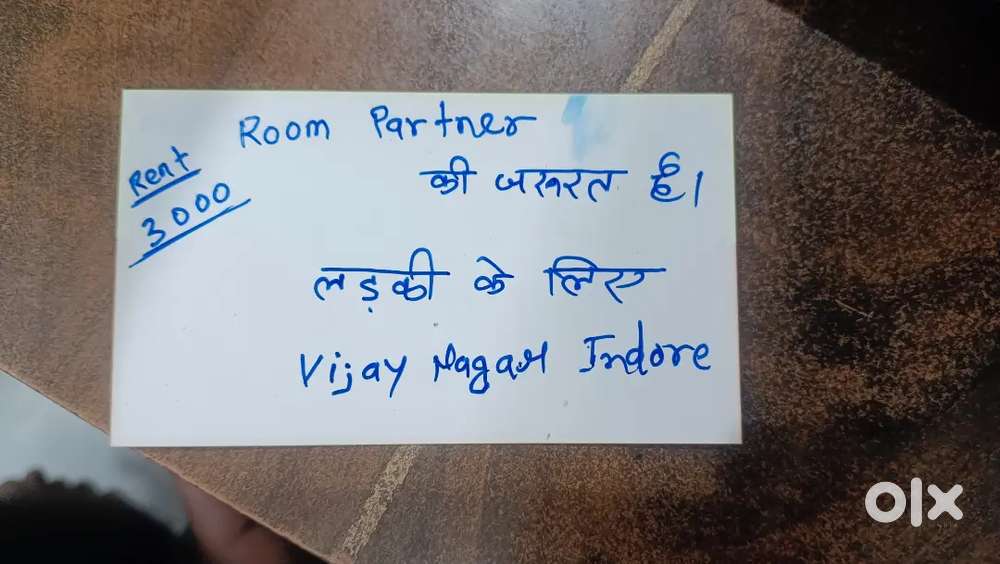 Rent
3000
Room Partner
की जरूरत है।
लड़की के लिए
Vijay Nagar Indore
olx